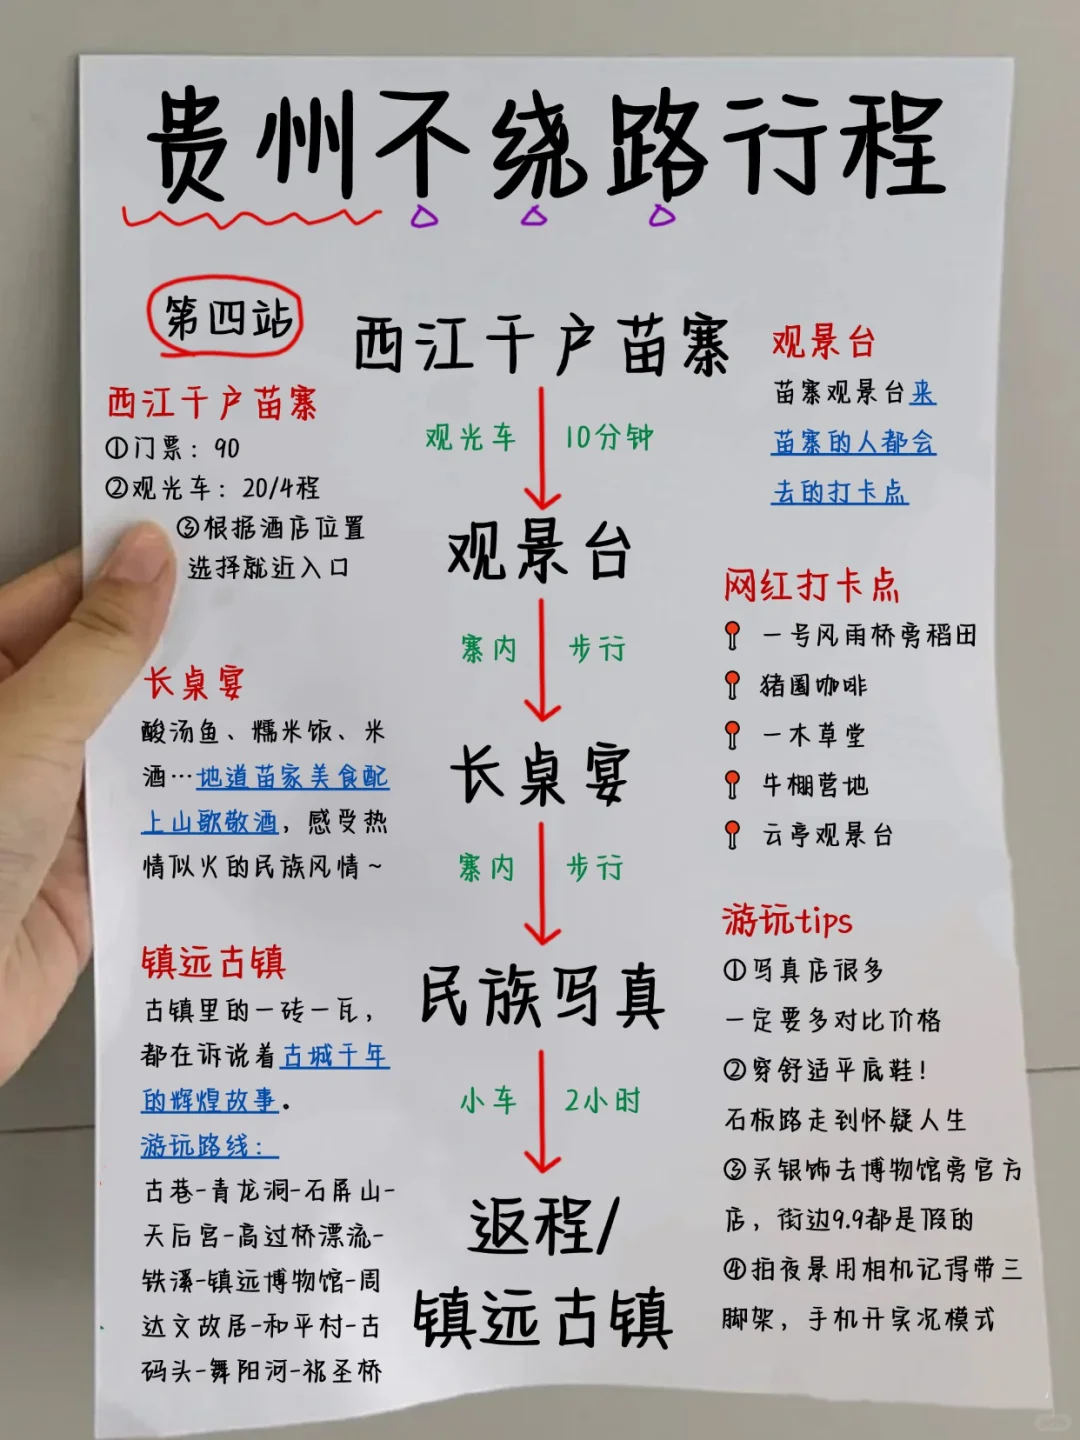 贵州不绕路行程
第四站
西江千户苗寨
西江千户苗寨
①门票：90
②观光车：20/4程
③根据酒店位置
选择就近入口
观光车 10分钟
观景台
苗寨观景台来
苗寨的人都会
去的打卡点
观景台
寨内 步行
网红打卡点
一号风雨桥旁稻田
猪圈咖啡
一木草堂
牛棚营地
云亭观景台
长桌宴
酸汤鱼、糯米饭、米
酒…地道苗家美食配
上山歌敬酒，感受热
情似火的民族风情~
长桌宴
寨内 步行
民族写真
小车 2小时
返程/
镇远古镇
镇远古镇
古镇里的一砖一瓦，
都在诉说着古城千年
的辉煌故事。
游玩路线：
古巷-青龙洞-石屏山-
天后宫-高过桥漂流-
铁溪-镇远博物馆-周
达文故居-和平村-古
码头-舞阳河-祝圣桥
游玩tips
①写真店很多
一定要多对比价格
②穿舒适平底鞋！
石板路走到怀疑人生
③买银饰去博物馆旁官方
店，街边9.9都是假的
④拍夜景用相机记得带三
脚架，手机开实况模式